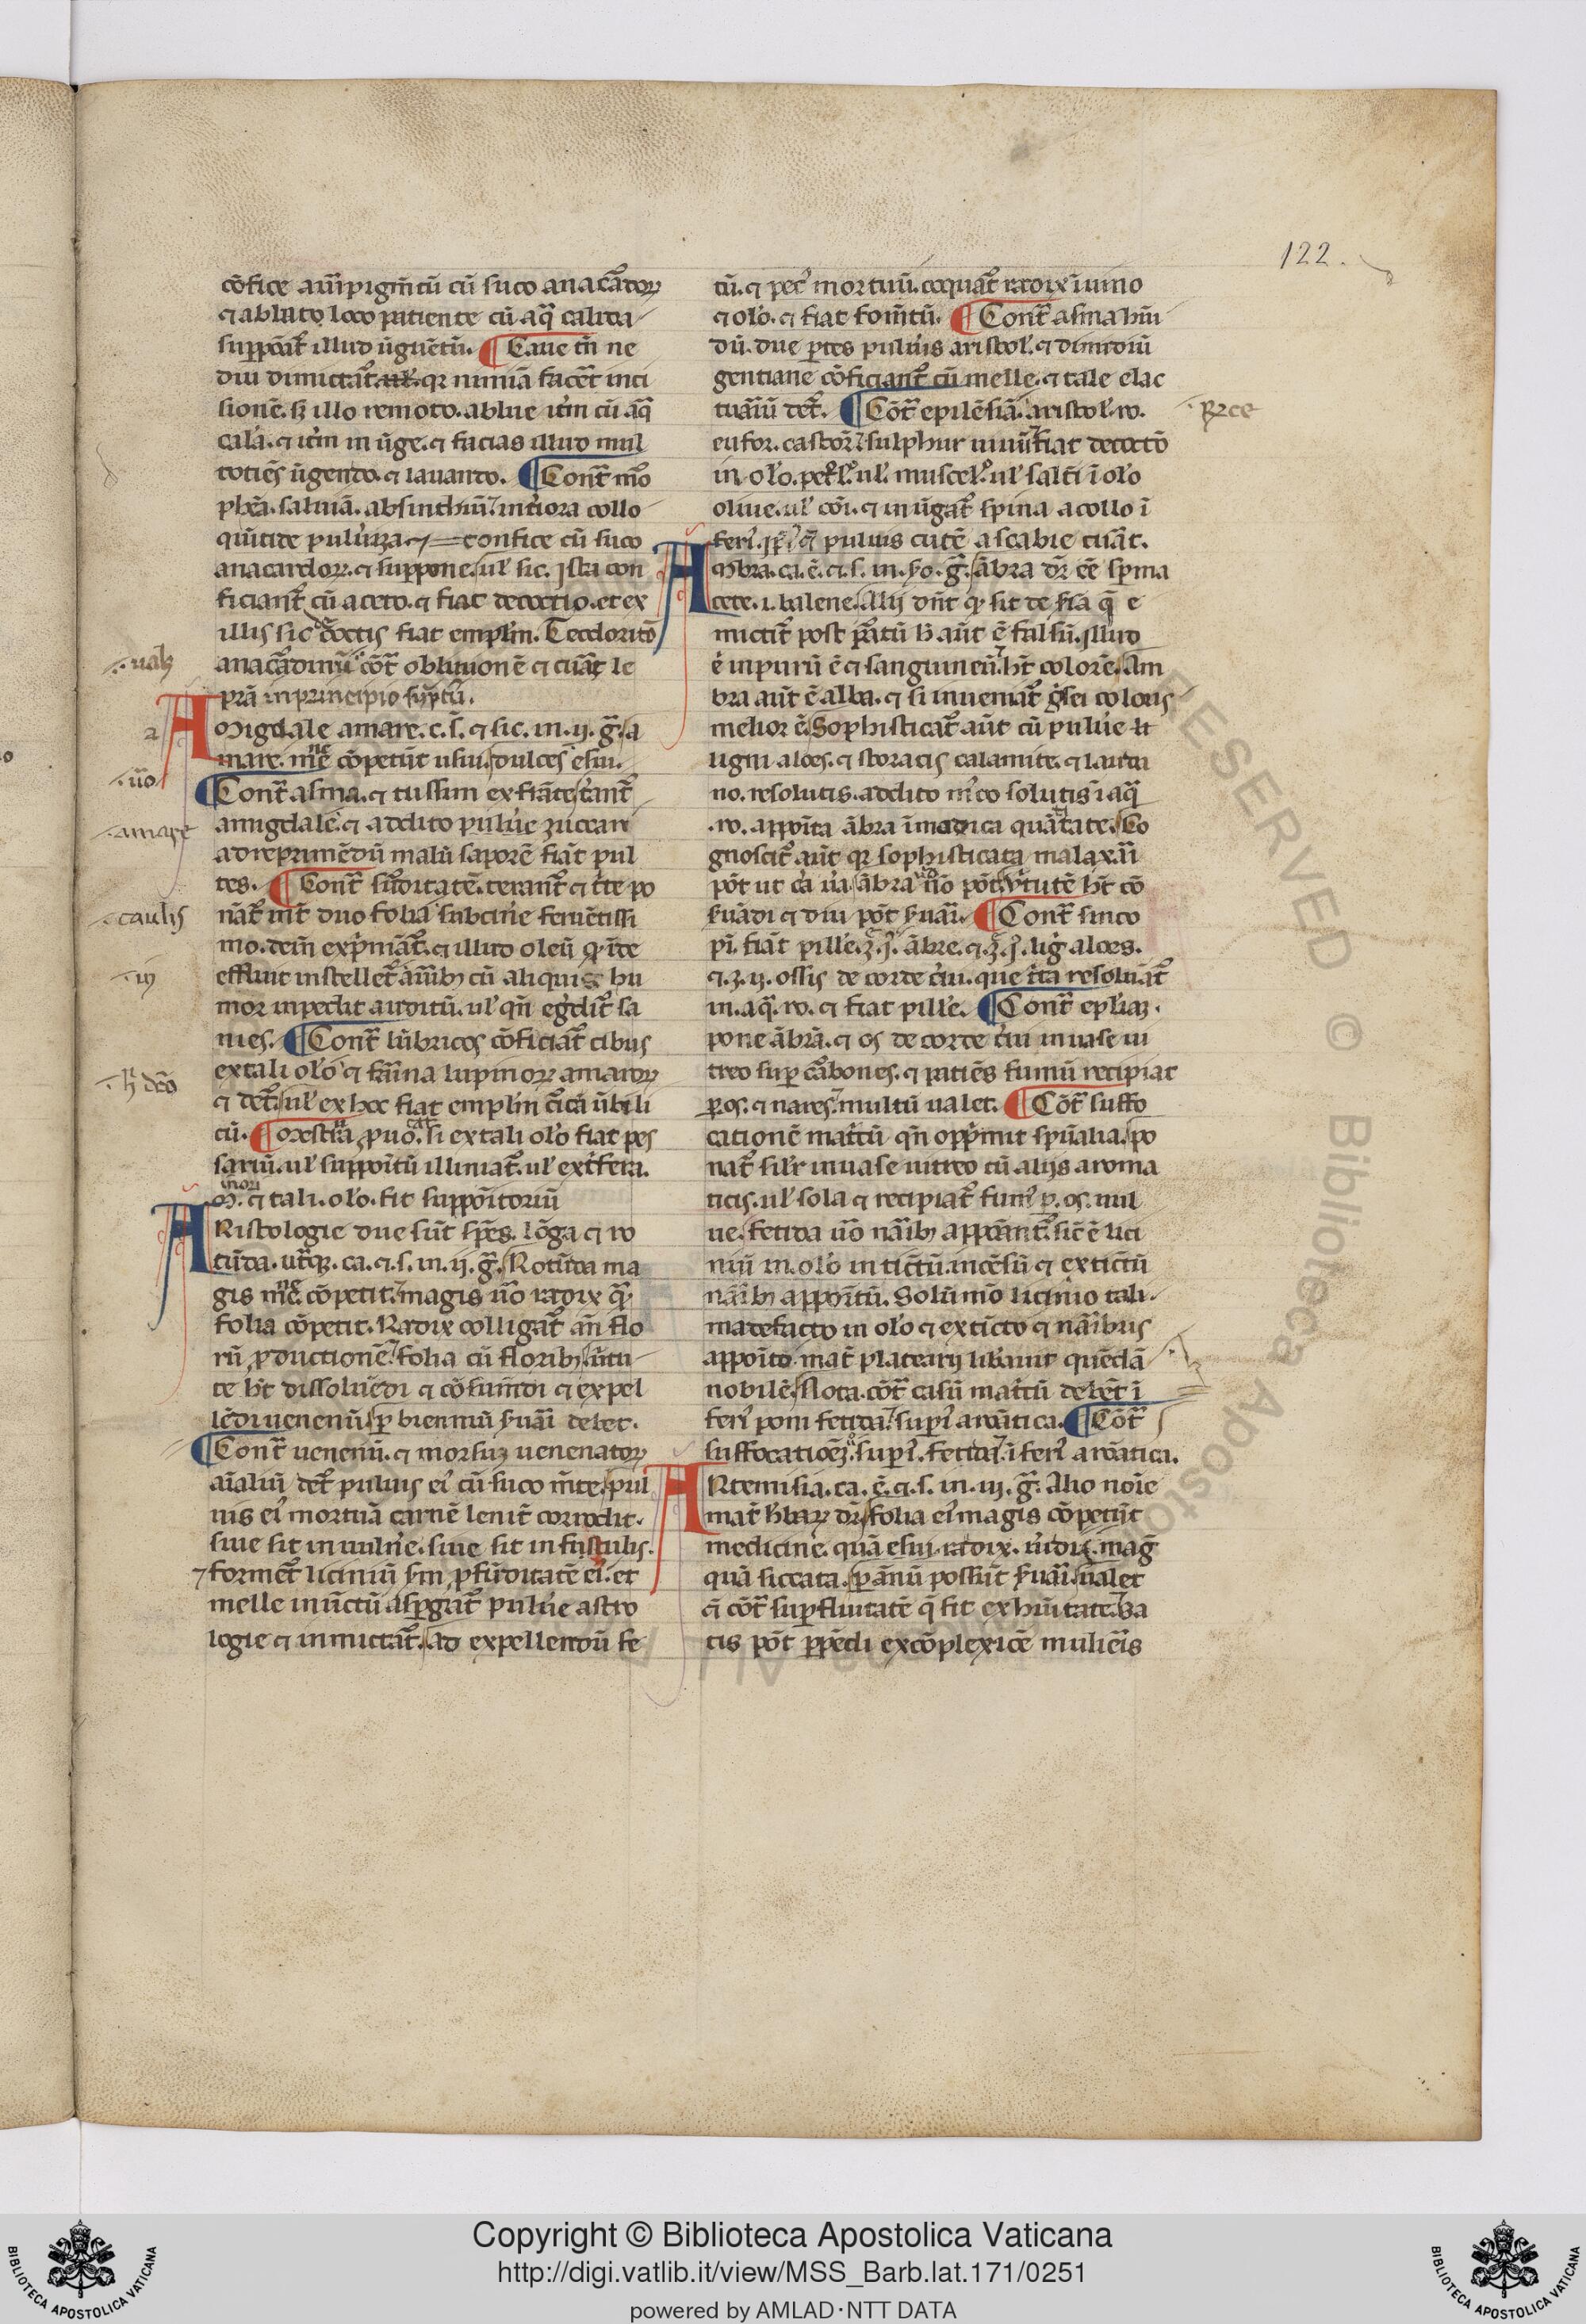 122.
cōfice auripigm̄tū cū suco anacardoꝝ
⁊ abluto loco patiente cū aqua calida
suppōat᷑ illud ūguētū. ¶ Caue tn̄ ne
diu dimictat᷑. qꝛ nimiā facet̄ inci
sionē. sꝫ illo remoto. ablue itm̄ cū aqͣ
cala. ⁊ itm̄ in ūge. ⁊ facias illud mul
totiēs ūgendo. ⁊ lauando. ¶ Contͣ
pbeā. saluiā. absinthiū. collo
confice cū suco
anacardoꝝ. ⁊ suppone. ul̓ sic. Ista con
ficiant᷑ cū aceto. ⁊ fiat decoctio. et ex
illis sic coctis fiat emplm̄. Teodoritō
anacardinū cōtͣ obliuionē ⁊ curat le
prā in principio sūptū.
Amigdale amare. c. s̄. ⁊ sic. in. ij. gͣ. a
mare. cōpetūt usui. dulces esui.
¶ Contͣ asma. ⁊ tussim ex fri͛te dant᷑
amigdale. ⁊ addito puluē zuccari
ad reprimēdū malū saporē fiāt pul
tes. ¶ Contͣ surditatē. terant᷑ ⁊ trite po
nāt᷑ int̄ duo folia sub cinē feruētissi
mo. dein̄ exp̓māt᷑. ⁊ illud oleū qd̓ īde
effluit instellet᷑ aurib᷒ cū aliquis hu
mor inpedit auditū. ul̓ qn̄ egͥdit᷑ sa
nies. ¶ Contͣ lūbricos cōficiat᷑ cibus
ex tali olo ⁊ farina lupinoꝝ amaroꝝ
⁊ det᷑. ul̓ ex hoc fiat emplm̄ circa ūbili
cū. ¶ Mēstrua ꝓuocat. si ex tali olo fiat pes
sariū. ul̓ suppoītū illiniat᷑.
⁊ tali. olo. fit suppoītoriū
ARistologie due sūt sp̄es. lōga ⁊ ro
tūda. utͣqꝫ. ca. ⁊. s. in. ij. gͣ. Rotūda ma
gis mͨe. cōpetit. magis uō radix qͣ
folia cōpetit. Radix colligat᷑ an̄ flo
rū ꝓductionē. folia cū florib᷒. uirtu
te ht̄ dissoluēdi ⁊ cōsumēdi ⁊ expel
lēdi uenenū. ꝑ bienniū s̓uari debet.
¶ Contͣ uenenū. ⁊ morsuꝫ uenenatoꝝ
aīaliū det᷑ puluis ei᷒ cū suco mēte. pul
uis ei᷒ mortuā carnē leuit̄ corrodit.
siue sit in uulne. siue sit in fistulis.
⁊ formet᷑ liciniū sm̄ ꝓfūditatē ei᷒. et
melle inūctū aspgat᷑ puluē astro
logie ⁊ inmictat᷑. Ad expellendū fe
tū. ⁊ pec᷒ mortuū. coquat᷑ radix ī uino
⁊ olo. ⁊ fiat fomētū. ¶ Contͣ asma humi
dū. due ptes puluis aristol̓. ⁊ dimidiū
gentiane cōficiant᷑ cū melle. ⁊ tale elac
tuariū det᷑. ¶ Cōtͣ epilēsiā. aristol̓. ro.
eufor. castor. sulphur uiuū fiat decoctō
in olo. petͦl̓. ul̓ muscel̓. ul̓ salti ī olo
oliue. ul̓ cōi. ⁊ inūgat᷑ spina a collo ī
feri᷒. puluis cutē a scabie curat.
AMbra. ca. ē. ⁊. s. in. so. gͣ. ābra dr̄ ēē sp̄ma
cete. i. balene. Alij dn̄t qd̓ sit de
mictit᷑ post partū hͨ aūt ē falsū. Illud
ē inpurū ē ⁊ sanguineū ht̄ colorē. Am
bra aūt ē alba. ⁊ si inueniat᷑ gͥsei coloris
melior ē. Sophisticat᷑ aūt cū puluē
ligni aloes. ⁊ storacis calamite. ⁊ lauda
no. resolutis. addito m̓co solutis ī aqͣ
.ro. appoīta ābra ī modica quātitate. Co
gnoscit᷑ aūt qꝛ sophisticata malaxari
pōt ut cera uera ābra uō nō pōt. uirtutē ht̄ cō
fortādi ⁊ diu pōt s̓uari. ¶ Contͣ sinco
pī. fiāt pill̓e. ābre. lig̓ aloes.
⁊. ʒ. ij. ossis de corde c̓ui. que trita resoluāt᷑
in. aqͣ. ro. ⁊ fiat pill̓e. ¶ Contͣ epl̓iaꝫ.
pone ābrā. ⁊ os de corde c̓ui in uase ui
treo sup carbones. ⁊ patiēs fumū recipiat
ꝑ os. ⁊ nares. multū ualet. ¶ Cōtͣ suffo
cationē matͥcis qn̄ opprimit spūalia. po
nat᷑ sil̓r in uase uitreo cū alijs aroma
ticis. ul̓ sola ⁊ recipiat᷑ fum᷒ ꝑ. os. uul
ue. fetida uō narib᷒ appōant᷑. sic̄ ē lici
niū in. olo intīctū. incēsū ⁊ extīctū
narib᷒ appoītū. Solūmō licinio tali.
madefacto in olo ⁊ extīcto ⁊ naribus
appoīto. mat̄ platearij lib̓auit quēdā
nobilē. Nota. cōtͣ casū matͥcis debēt ī
feri᷒ poni fetida. supi᷒ aroātica. ¶ Cōtͣ
suffocatioēꝫ. supi᷒. fetida. ī feri᷒ aroatica.
ARtemisia. ca. ē. ⁊. s. in. iij. gͣ. Alio noīe
mat̄ h̓baꝝ dr̄. folia ei᷒ magis cōpetūt
medicine. quā esui radix. uiridis. mag̓
quā siccata. ꝑ ānū possūt s̓uari. ualet
cōtͣ supfluitatē q̄ fit ex hūitate. Sa
tis pōt ppēdi ex cōplexiōe mulieris
caulis
amare
iij
Copyright © Biblioteca Apostolica Vaticana
http://digi.vatlib.it/view/MSS_Barb.lat.171/0251
powered by AMLAD·NTT DATA
BIBLIOTECA APOSTOLICA VATICANA
BIBLIOTECA APOSTOLICA VATICANA